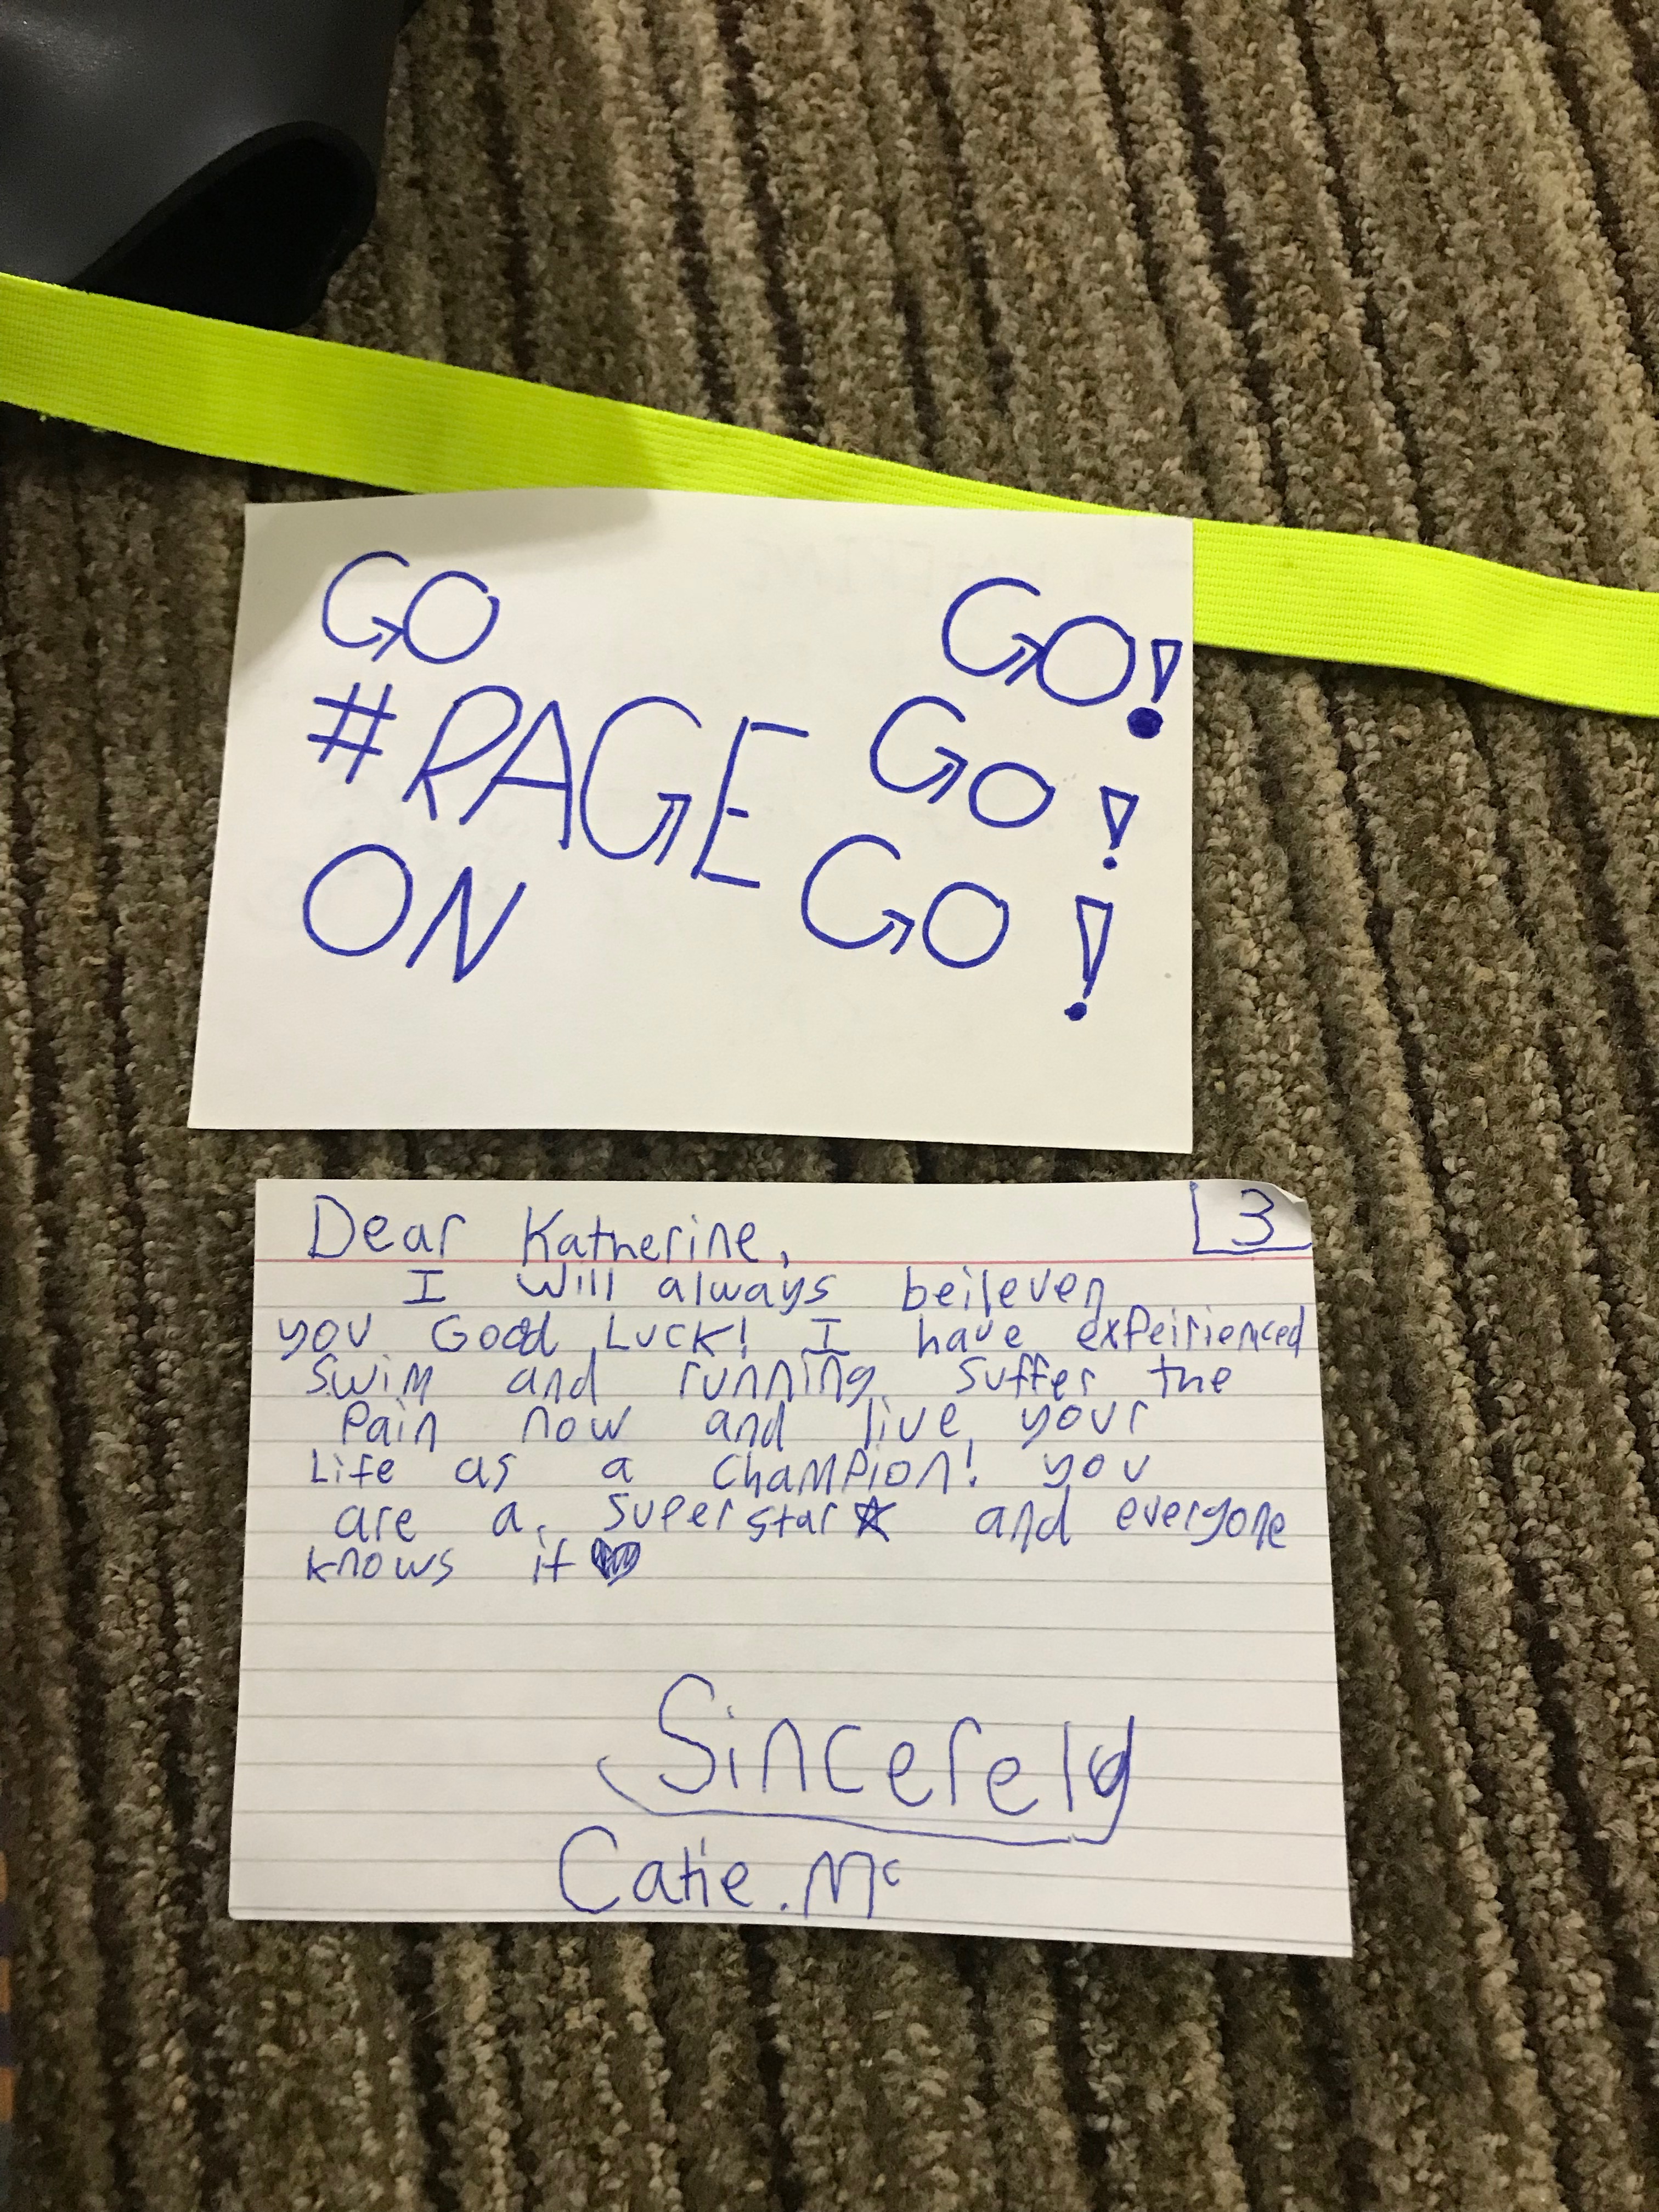 GO GO!
#RAGE GO!
ON GO!
Dear Katherine, 3
I will always beileven
you Good Luck! I have expeirienced
Swim and running. suffer the
Pain now and live your
Life as a champion! you
are a superstar and everyone
knows it
Sincerely
Catie.Mc